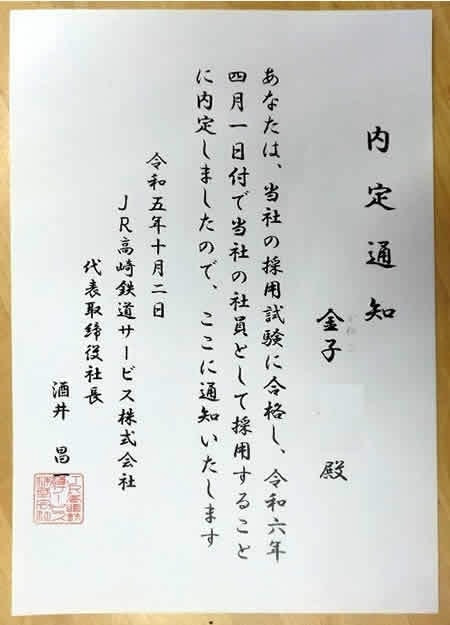 内定通知
金子 殿
あなたは、当社の採用試験に合格し、令和六年
四月一日付で当社の社員として採用すること
に内定しましたので、ここに通知いたします
令和五年十月二日
JR高崎鉄道サービス株式会社
代表取締役社長
酒井 昌